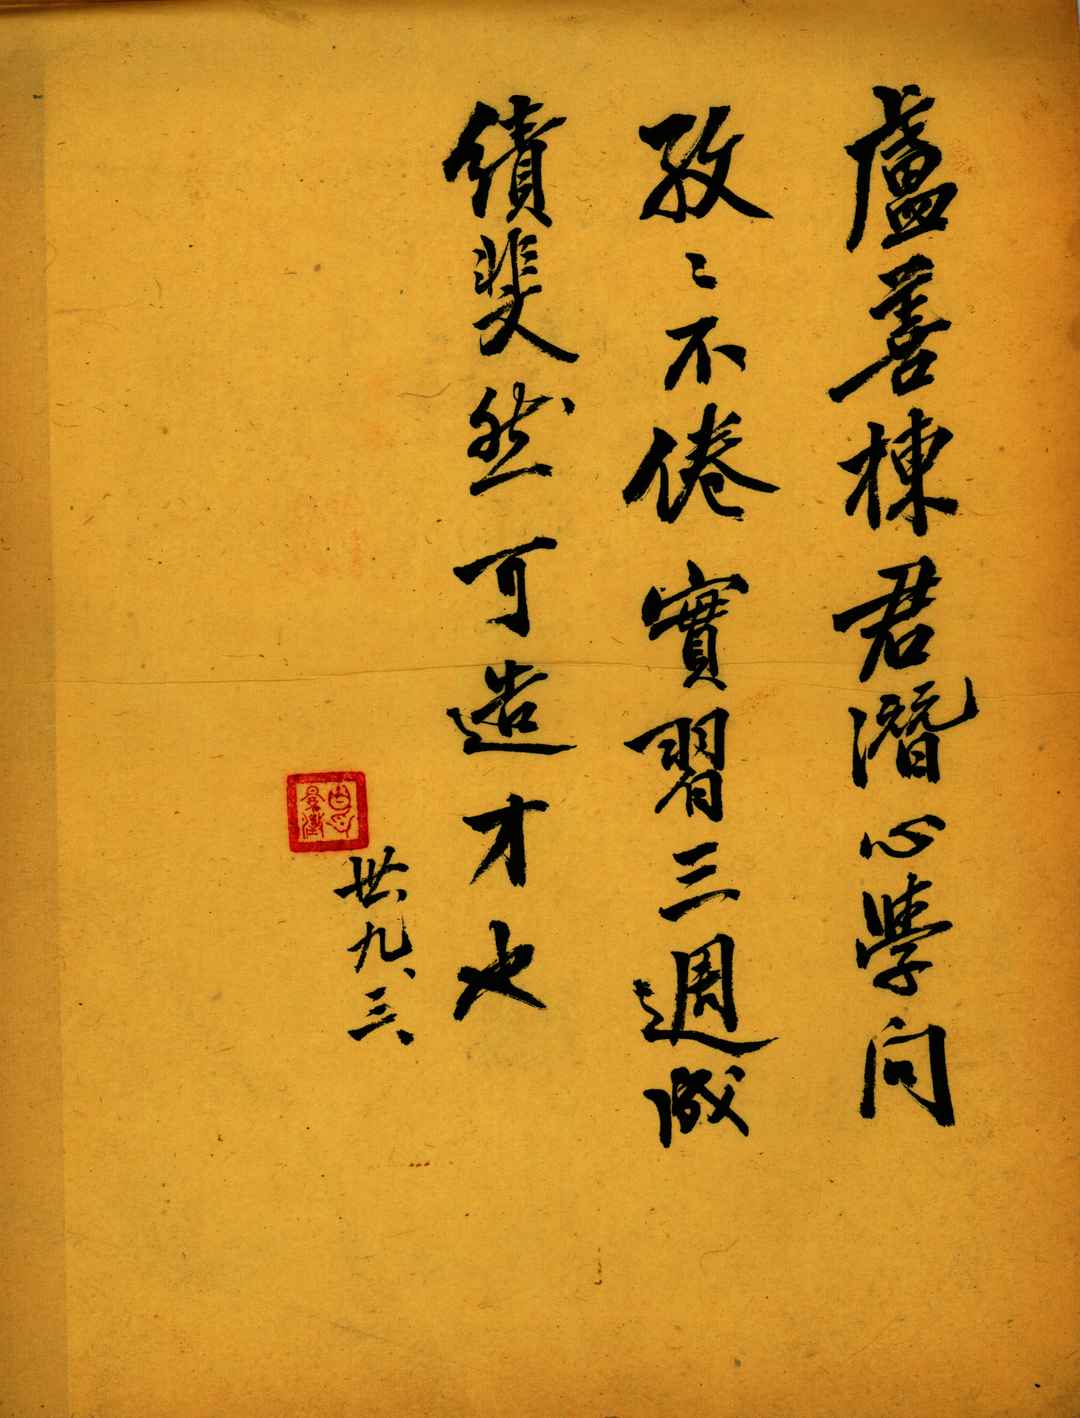 盧善棟君潛心學问
孜〻不倦實習三週成
績斐然可造才也
卅、九、三、